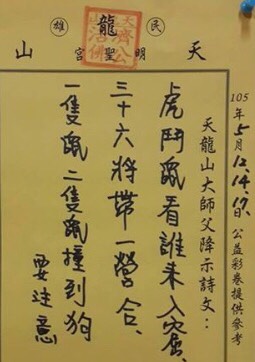 民龍雄
天明聖宮山
105年5月12.14.17.日公益彩卷提供參考
天龍山大師父降示詩文：
虎鬥鼠看誰未入窟、
三十六將帶一營合、
一隻鼠二隻鼠撞到狗
要注意